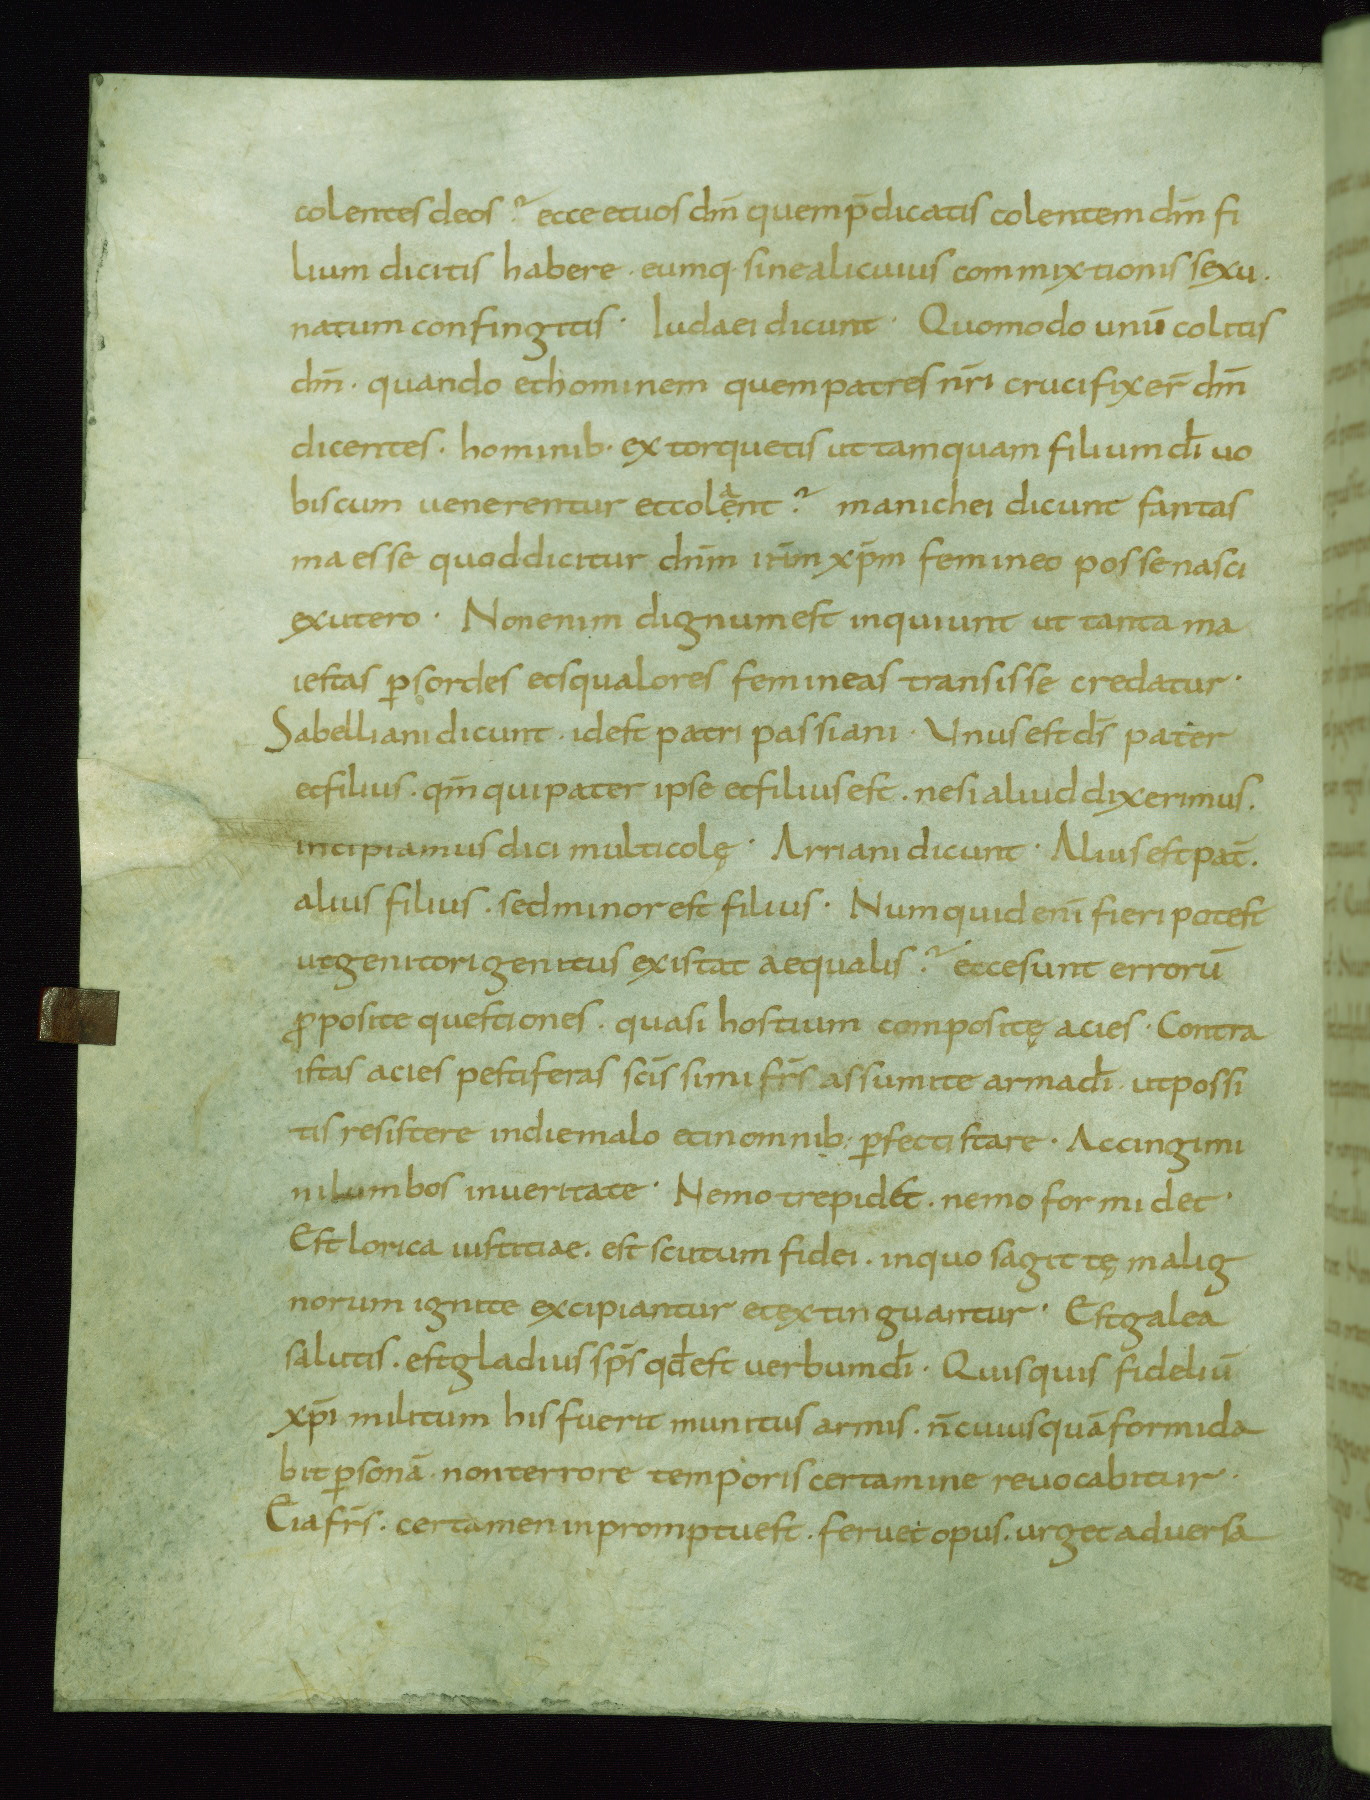 colentes deos ? ecce et uos dm̄ quem p̄dicatis colentem dm̄ fi
lium dicitis habere · eumq· sine alicuius commixtionis sexu ·
natum confingitis · Iudaei dicunt · Quomodo unū colitis
dm̄ · quando et hominem quem patres nr̄i crucifixer̄ dm̄
dicentes · hominib· extorquetis ut tamquam filium dī uo
biscum uenerentur et colęant ? manichei dicunt fantas
ma esse quod dicitur dn̄m ih̄m xp̄m femineo posse nasci
ex utero · Non enim dignum est inquiunt ut tanta ma
iestas ꝑ sordes et squalores femineas transisse credatur ·
Sabelliani dicunt · id est patri passiani · Unus est ds̄ pater
et filius · qm̄ qui pater ipse et filius est · ne si aliud dixerimus ·
incipiamus dici multicolę · Arriani dicunt · Alius est pat̄ ·
alius filius · sed minor est filius · Numquid enī fieri potest
ut genitori genitus existat aequalis ? ecce sunt errorū
ꝓposite questiones · quasi hostium compositę acies · Contra
istas acies pestiferas sc̄issimi fr̄s assumite arma dī · ut possi
tis resistere in die malo et in omnib; ꝑfecti stare · Accingimi
ni lumbos in ueritate · Nemo trepidet · nemo formidet ·
Est lorica iustitiae · est scutum fidei · in quo sagittę malig
norum ignite excipiantur et extinguantur · Est galea
salutis · est gladius sp̄s qd̄ est uerbum dī · Quisquis fideliū
xp̄i militum his fuerit munitus armis · n̄ cuiusquā formida
bit ꝑsonā · non terrore temporis certamine reuocabitur ·
Eia fr̄s · certamen in promptu est · feruet opus · urget aduersa